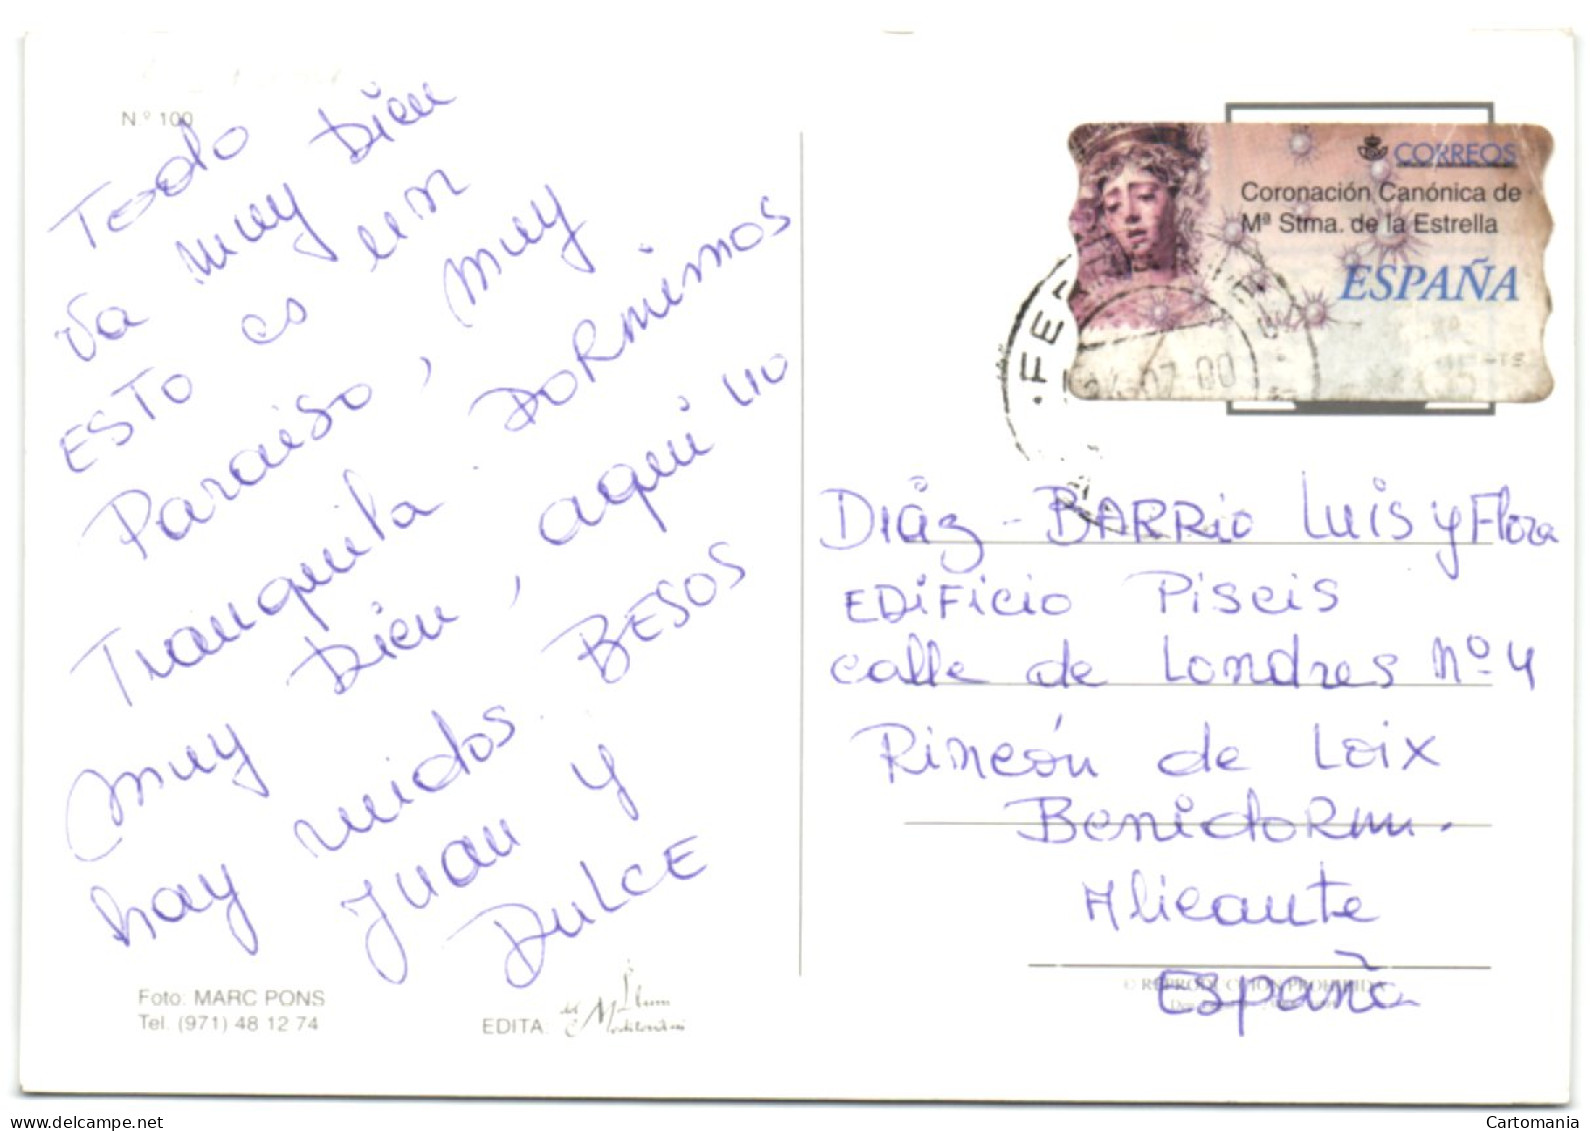 N.º 100
Todo
va muy bien
ESTO es un
Paraiso, muy
Tranquila. DORMIMOS
muy bien, aqui no
hay ruidos. BESOS
Juan y
DULCE
Foto: MARC PONS
Tel. (971) 48 12 74
EDITA:
CORREOS
Coronación Canónica de
Mª Stma. de la Estrella
ESPAÑA
07-00
Diáz - BARRio Luis y Flora
EDiFicio Piscis
calle de Londres Nº 4
Rincón de Loix
Benidorm.
Alicante
España
© REPRODUCCION PROHIBIDA
Cartomania